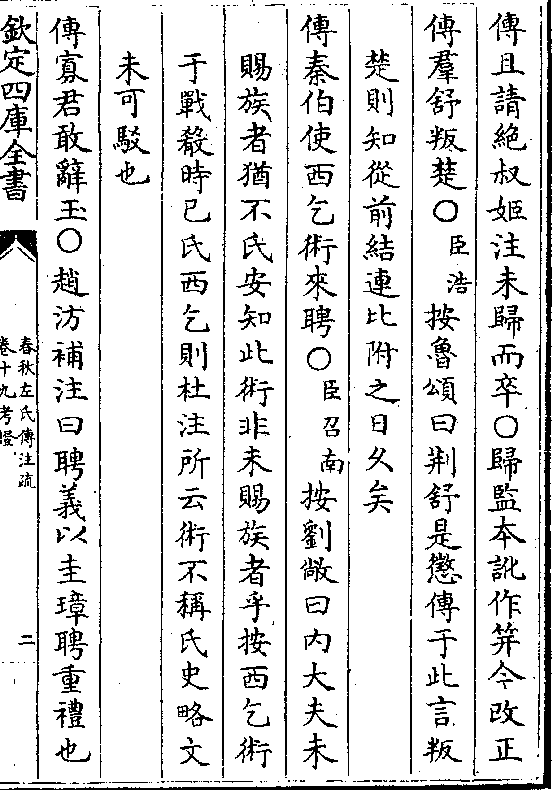 傳且請絶叔姬注未歸而卒○歸監本訛作筓今改正
傳羣舒叛楚○臣浩按魯頌曰荆舒是懲傳于此言叛
楚則知從前結連比附之日久矣
傳秦伯使西乞術來聘○臣召南按劉敞曰内大夫未
賜族者猶不氏安知此術非未賜族者乎按西乞術
于戰殽時已氏西乞則杜注所云術不稱氏史略文
未可駁也
傳寡君敢辭玉○趙汸補注曰聘義以圭璋聘重禮也
欽定四庫全書
春秋左氏傳注疏
卷十九考證
二